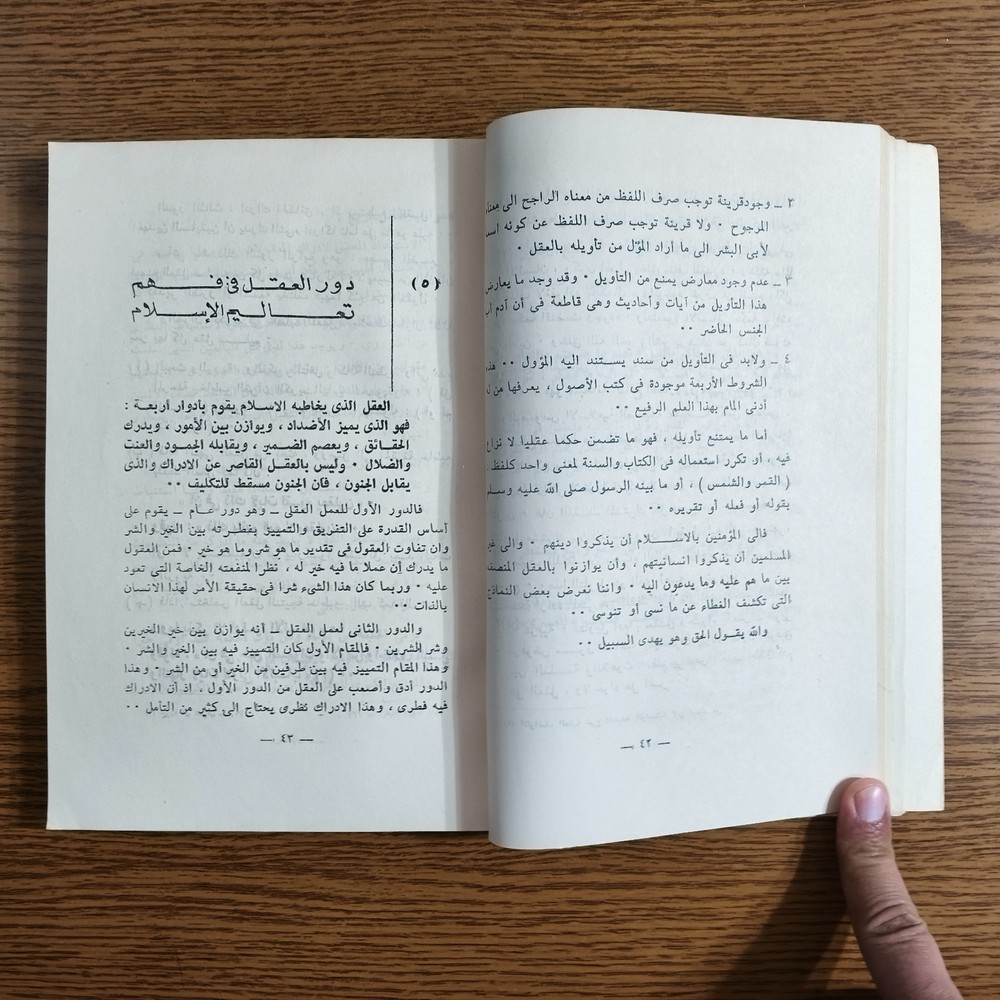 ٢ ــ وجود قرينة توجب صرف اللفظ من معناه الراجح الى معناه
المرجوح ٠ ولا قرينة توجب صرف اللفظ عن كونه
لأبى البشر الى ما أراد المؤل من تأويله بالعقل ٠
٣ ــ عدم وجود معارض يمنع من التأويل ٠ وقد وجد ما يعارض
هذا التأويل من آيات وأحاديث وهى قاطعة فى أن آدم
الجنس الحاضر ٠٠
٤ ــ ولابد فى التأويل من سند يستند اليه المؤول ٠٠ هذه
الشروط الأربعة موجودة فى كتب الأصول ، يعرفها من
أدنى المام بهذا العلم الرفيع ٠٠
أما ما يمتنع تأويله ، فهو ما تضمن حكما عقليا لا نزاع
فيه ، أو تكرر استعماله فى الكتاب والسنة لمعنى واحد كلفظ
( القمر والشمس ) ، أو ما بينه الرسول صلى الله عليه وسلم
بقوله أو فعله أو تقريره ٠٠
فالى المؤمنين بالاســـلام أن يذكروا دينهم ٠ والى غير
المسلمين أن يذكروا انسانيتهم ، وأن يوازنوا بالعقل المنصف
بين ما هم عليه وما يدعون اليه ٠ واننا نعرض بعض النماذج
التى تكشف الغطاء عن ما نسى أو تنوسى ٠٠
والله يقــول الحق وهو يهدى السبيل ٠٠
ــ ٤٢ ــ
(٥)
دور العقــل فى فــــهم
تعـــاليم الإســـلام
العقل الذى يخاطبه الاسلام يقوم بأدوار أربعة :
فهو الذى يميز الأضداد ، ويوازن بين الأمور ، ويدرك
الحقائق ، ويعصم الضمير ، ويقابله الجمود والعنت
والضلال ٠ وليس بالعقل القاصر عن الادراك والذى
يقابل الجنون ، فأن الجنون مسقط للتكليف ٠٠
فالدور الأول للعمل العقلى ــ وهو دور عــام ــ يقوم على
أساس القدرة على التفريق والتمييز بفطــرته بين الخير والشر
وان تفاوت العقول فى تقدير ما هو شر وما هو خير ٠ فمن العقول
ما يدرك إن عملا ما فيه خير له ، نظرا لمنفعته الخاصة التى تعود
عليه ٠ وربما كان هذا الشىء شرا فى حقيقة الأمر لهذا الانسان
بالذات ٠٠
والدور الثانى لعمل العقل ــ أنه يوازن بين خير الخيرين
وشر الشرين ٠ فالمقام الأول كان التمييز فيه بين الخير والشر ٠
وهذا المقام التمييز فيه بين طرفين من الخير أو من الشر ٠ وهذا
الدور أدق وأصعب على العقل من الدور الأول . اذ أن الادراك
فيه فطرى ، وهذا الادراك نظرى يحتاج الى كثير من التأمل ٠٠
ــ ٤٣ ــ